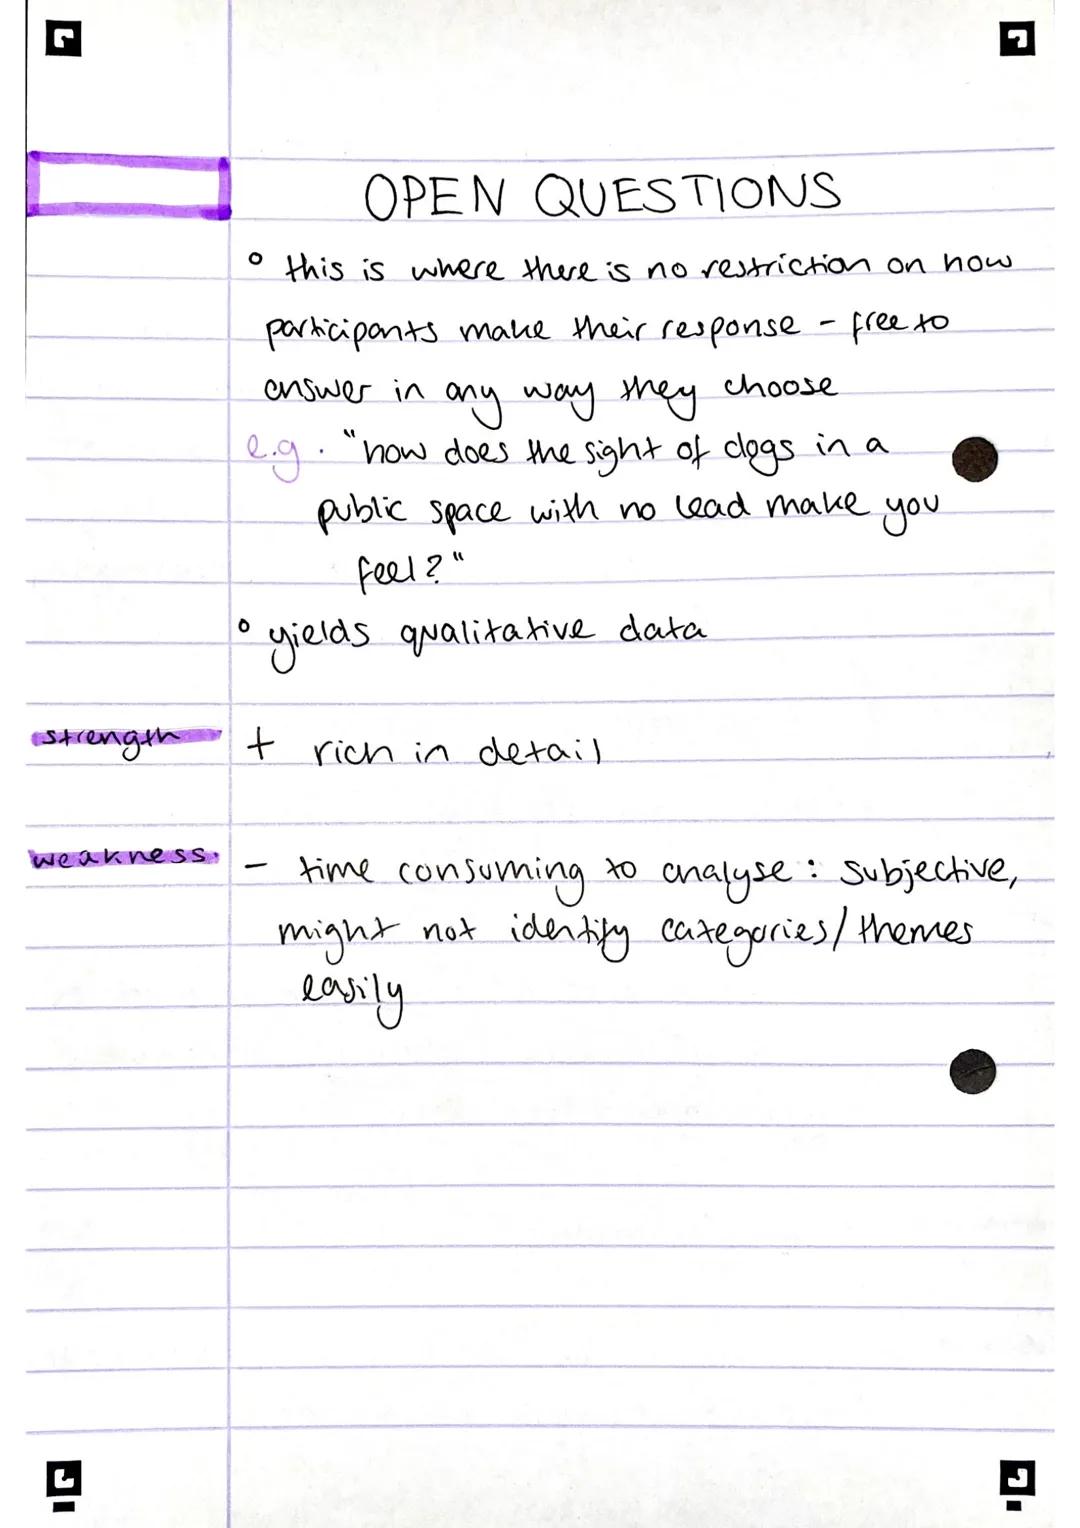 OPEN QUESTIONS
° this is where there is no restriction on how
participants make their response - free to
answer in any way they choose
e.g. "how does the sight of dogs in a
public space with no lead make you
feel?"
° yields qualitative data
strength + rich in detail
weakness. - time consuming to analyse: subjective,
might not identify categories/themes
easily